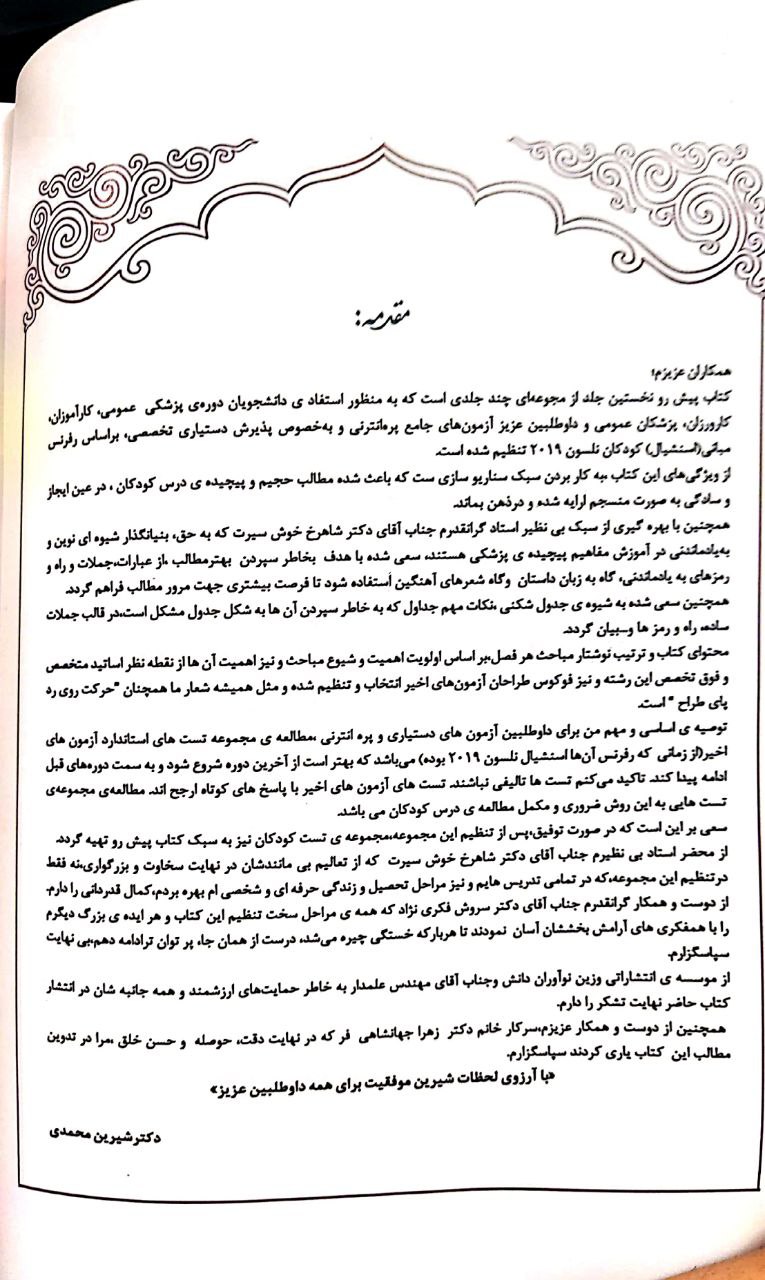 مقدمه:
همکاران عزیزم؛
کتاب پیش رو نخستین جلد از مجموعه‌ای چند جلدی است که به منظور استفاد ی دانشجویان دوره‌ی پزشکی عمومی، کارآموزان،
کارورزان، پزشکان عمومی و داوطلبین عزیز آزمون‌های جامع پره‌انترنی و به‌خصوص پذیرش دستیاری تخصصی، براساس رفرنس
مبانی(اسنشیال) کودکان نلسون ۲۰۱۹ تنظیم شده است.
از ویژگی‌های این کتاب ،به کار بردن سبک سناریو سازی ست که باعث شده مطالب حجیم و پیچیده ی درس کودکان ، در عین ایجاز
و سادگی به صورت منسجم ارایه شده و درذهن بماند.
همچنین با بهره گیری از سبک بی نظیر استاد گرانقدرم جناب آقای دکتر شاهرخ خوش سیرت که به حق، بنیانگذار شیوه ای نوین و
به‌یادماندنی در آموزش مفاهیم پیچیده ی پزشکی هستند، سعی شده با هدف بخاطر سپردن بهترمطالب ،از عبارات،جملات و راه و
رمزهای به یادماندنی، گاه به زبان داستان وگاه شعرهای آهنگین استفاده شود تا فرصت بیشتری جهت مرور مطالب فراهم گردد.
همچنین سعی شده به شیوه ی جدول شکنی ،نکات مهم جداول که به خاطر سپردن آن ها به شکل جدول مشکل است،در قالب جملات
ساده، راه و رمز ها و...بیان گردد.
محتوای کتاب و ترتیب نوشتار مباحث هر فصل،بر اساس اولویت اهمیت و شیوع مباحث و نیز اهمیت آن ها از نقطه نظر اساتید متخصص
و فوق تخصص این رشته و نیز فوکوس طراحان آزمون‌های اخیر انتخاب و تنظیم شده و مثل همیشه شعار ما همچنان "حرکت روی رد
پای طراح " است.
توصیه ی اساسی و مهم من برای داوطلبین آزمون های دستیاری و پره انترنی ،مطالعه ی مجموعه تست های استاندارد آزمون های
اخیر(از زمانی که رفرنس آن‌ها اسنشیال نلسون ۲۰۱۹ بوده) می‌باشد که بهتر است از آخرین دوره شروع شود و به سمت دوره‌های قبل
ادامه پیدا کند. تاکید می‌کنم تست ها تالیفی نباشند. تست های آزمون های اخیر با پاسخ های کوتاه ارجح اند. مطالعه‌ی مجموعه‌ی
تست هایی به این روش ضروری و مکمل مطالعه ی درس کودکان می باشد.
سعی بر این است که در صورت توفیق،پس از تنظیم این مجموعه،مجموعه ی تست کودکان نیز به سبک کتاب پیش رو تهیه گردد.
از محضر استاد بی نظیرم جناب آقای دکتر شاهرخ خوش سیرت که از تعالیم بی مانندشان در نهایت سخاوت و بزرگواری،نه فقط
درتنظیم این مجموعه،که در تمامی تدریس هایم و نیز مراحل تحصیل و زندگی حرفه ای و شخصی ام بهره بردم،کمال قدردانی را دارم.
از دوست و همکار گرانقدرم جناب آقای دکتر سروش فکری نژاد که همه ی مراحل سخت تنظیم این کتاب و هر ایده ی بزرگ دیگرم
را با همفکری های آرامش بخششان آسان نمودند تا هربارکه خستگی چیره می‌شد، درست از همان جا، پر توان ترادامه دهم،بی نهایت
سپاسگزارم.
از موسسه ی انتشاراتی وزین نوآوران دانش وجناب آقای مهندس علمدار به خاطر حمایت‌های ارزشمند و همه جانبه شان در انتشار
کتاب حاضر نهایت تشکر را دارم.
همچنین از دوست و همکار عزیزم،سرکار خانم دکتر زهرا جهانشاهی فر که در نهایت دقت، حوصله و حسن خلق ،مرا در تدوین
مطالب این کتاب یاری کردند سپاسگزارم.
«با آرزوی لحظات شیرین موفقیت برای همه داوطلبین عزیز»
دکترشیرین محمدی